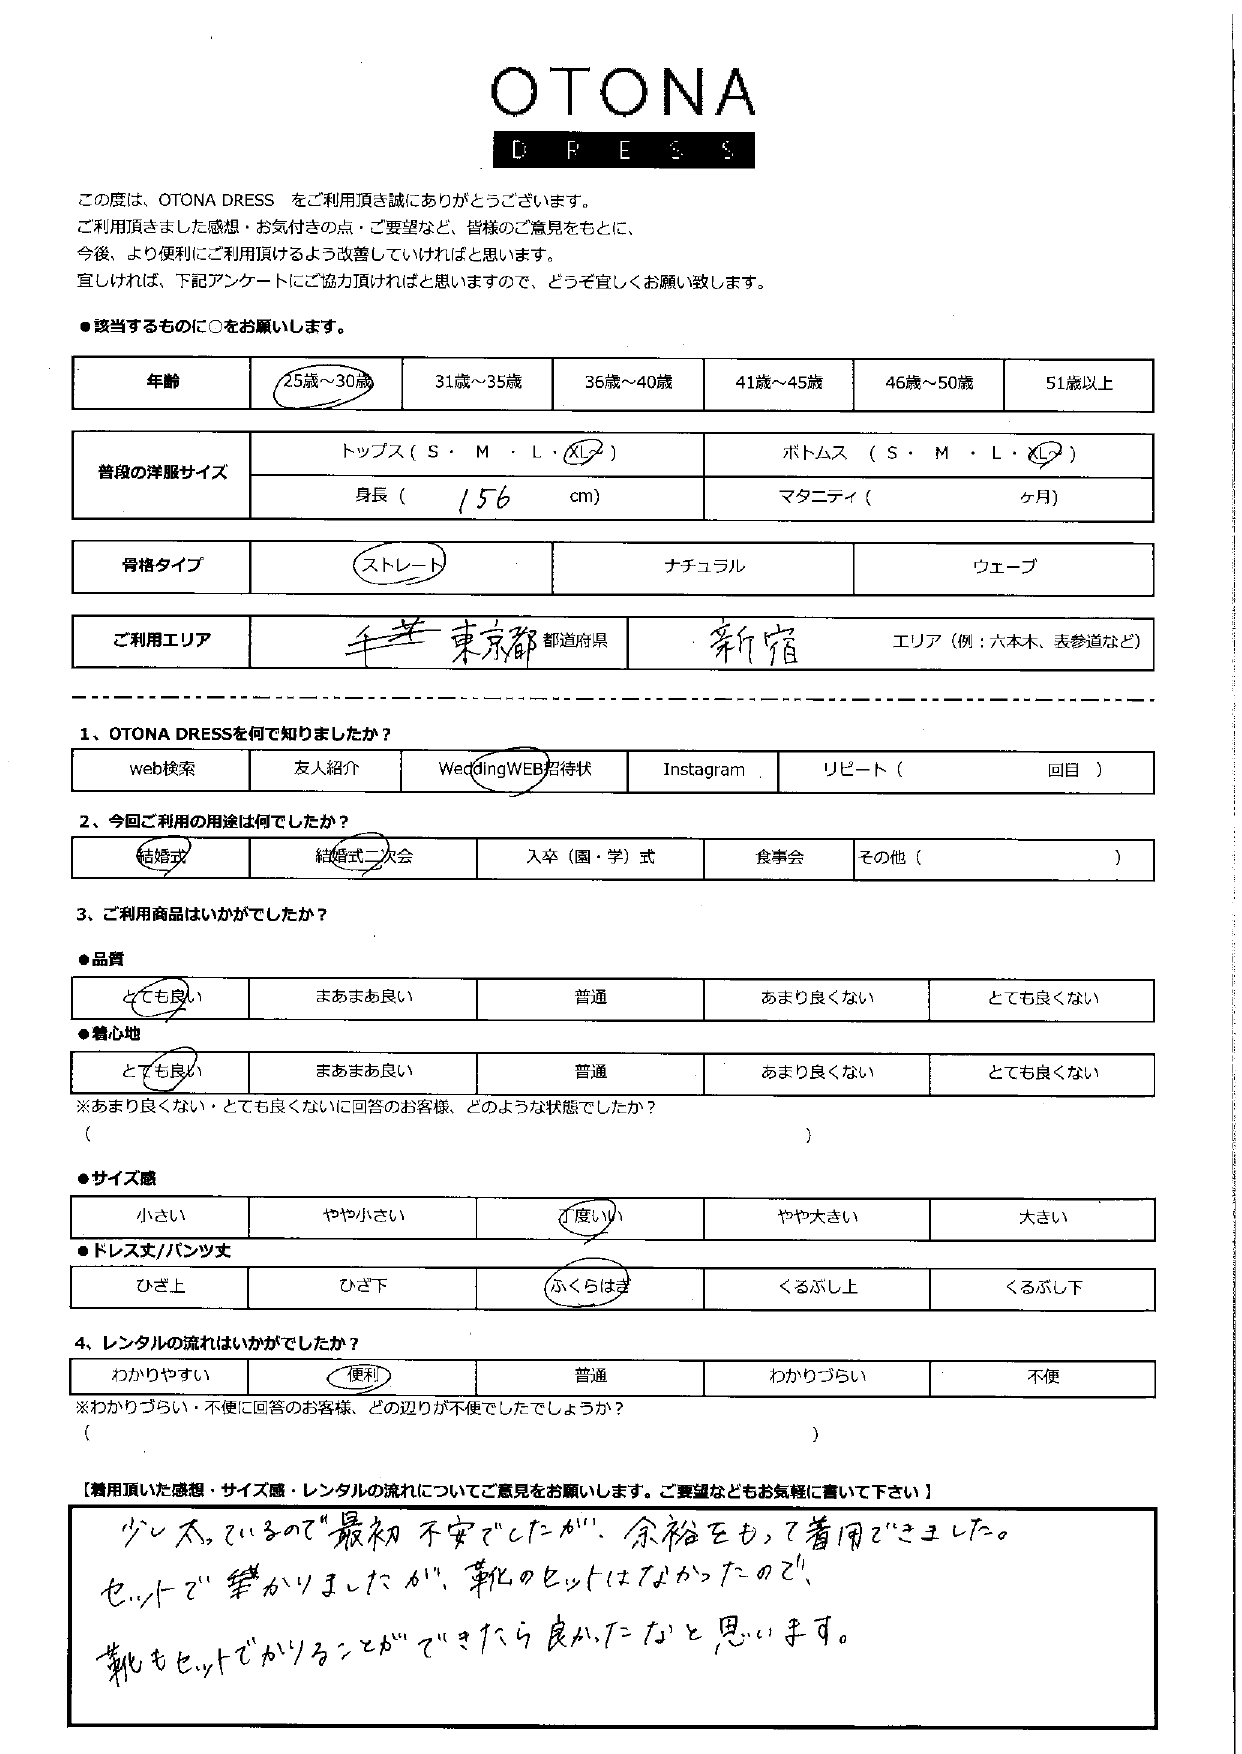 OTONA
DRESS
この度は、OTONA DRESS をご利用頂き誠にありがとうございます。
ご利用頂きました感想・お気付きの点・ご要望など、皆様のご意見をもとに、
今後、より便利にご利用頂けるよう改善していければと思います。
宜しければ、下記アンケートにご協力頂ければと思いますので、どうぞ宜しくお願い致します。
●該当するものに○をお願いします。
年齢 25歳～30歳 31歳～35歳 36歳～40歳 41歳～45歳 46歳～50歳 51歳以上
普段の洋服サイズ トップス ( S ・ M ・ L ・ XL～ ) ボトムス ( S ・ M ・ L ・ XL～ )
身長 ( 156 cm) マタニティ ( ヶ月)
骨格タイプ ストレート ナチュラル ウェーブ
ご利用エリア 千葉 東京都 都道府県 新宿 エリア（例：六本木、表参道など）
1、OTONA DRESSを何で知りましたか？
web検索 友人紹介 WeddingWEB招待状 Instagram リピート ( 回目 )
2、今回ご利用の用途は何でしたか？
結婚式 結婚式二次会 入卒（園・学）式 食事会 その他 ( )
3、ご利用商品はいかがでしたか？
●品質
とても良い まあまあ良い 普通 あまり良くない とても良くない
●着心地
とても良い まあまあ良い 普通 あまり良くない とても良くない
※あまり良くない・とても良くないに回答のお客様、どのような状態でしたか？
( )
●サイズ感
小さい やや小さい 丁度いい やや大きい 大きい
●ドレス丈/パンツ丈
ひざ上 ひざ下 ふくらはぎ くるぶし上 くるぶし下
4、レンタルの流れはいかがでしたか？
わかりやすい 便利 普通 わかりづらい 不便
※わかりづらい・不便に回答のお客様、どの辺りが不便でしたでしょうか？
( )
【着用頂いた感想・サイズ感・レンタルの流れについてご意見をお願いします。ご要望などもお気軽に書いて下さい】
少し太っているので最初不安でしたが、余裕をもって着用できました。
セットでかりましたが、靴のセットはなかったので、
靴もセットでかりることができたら良かったなと思います。